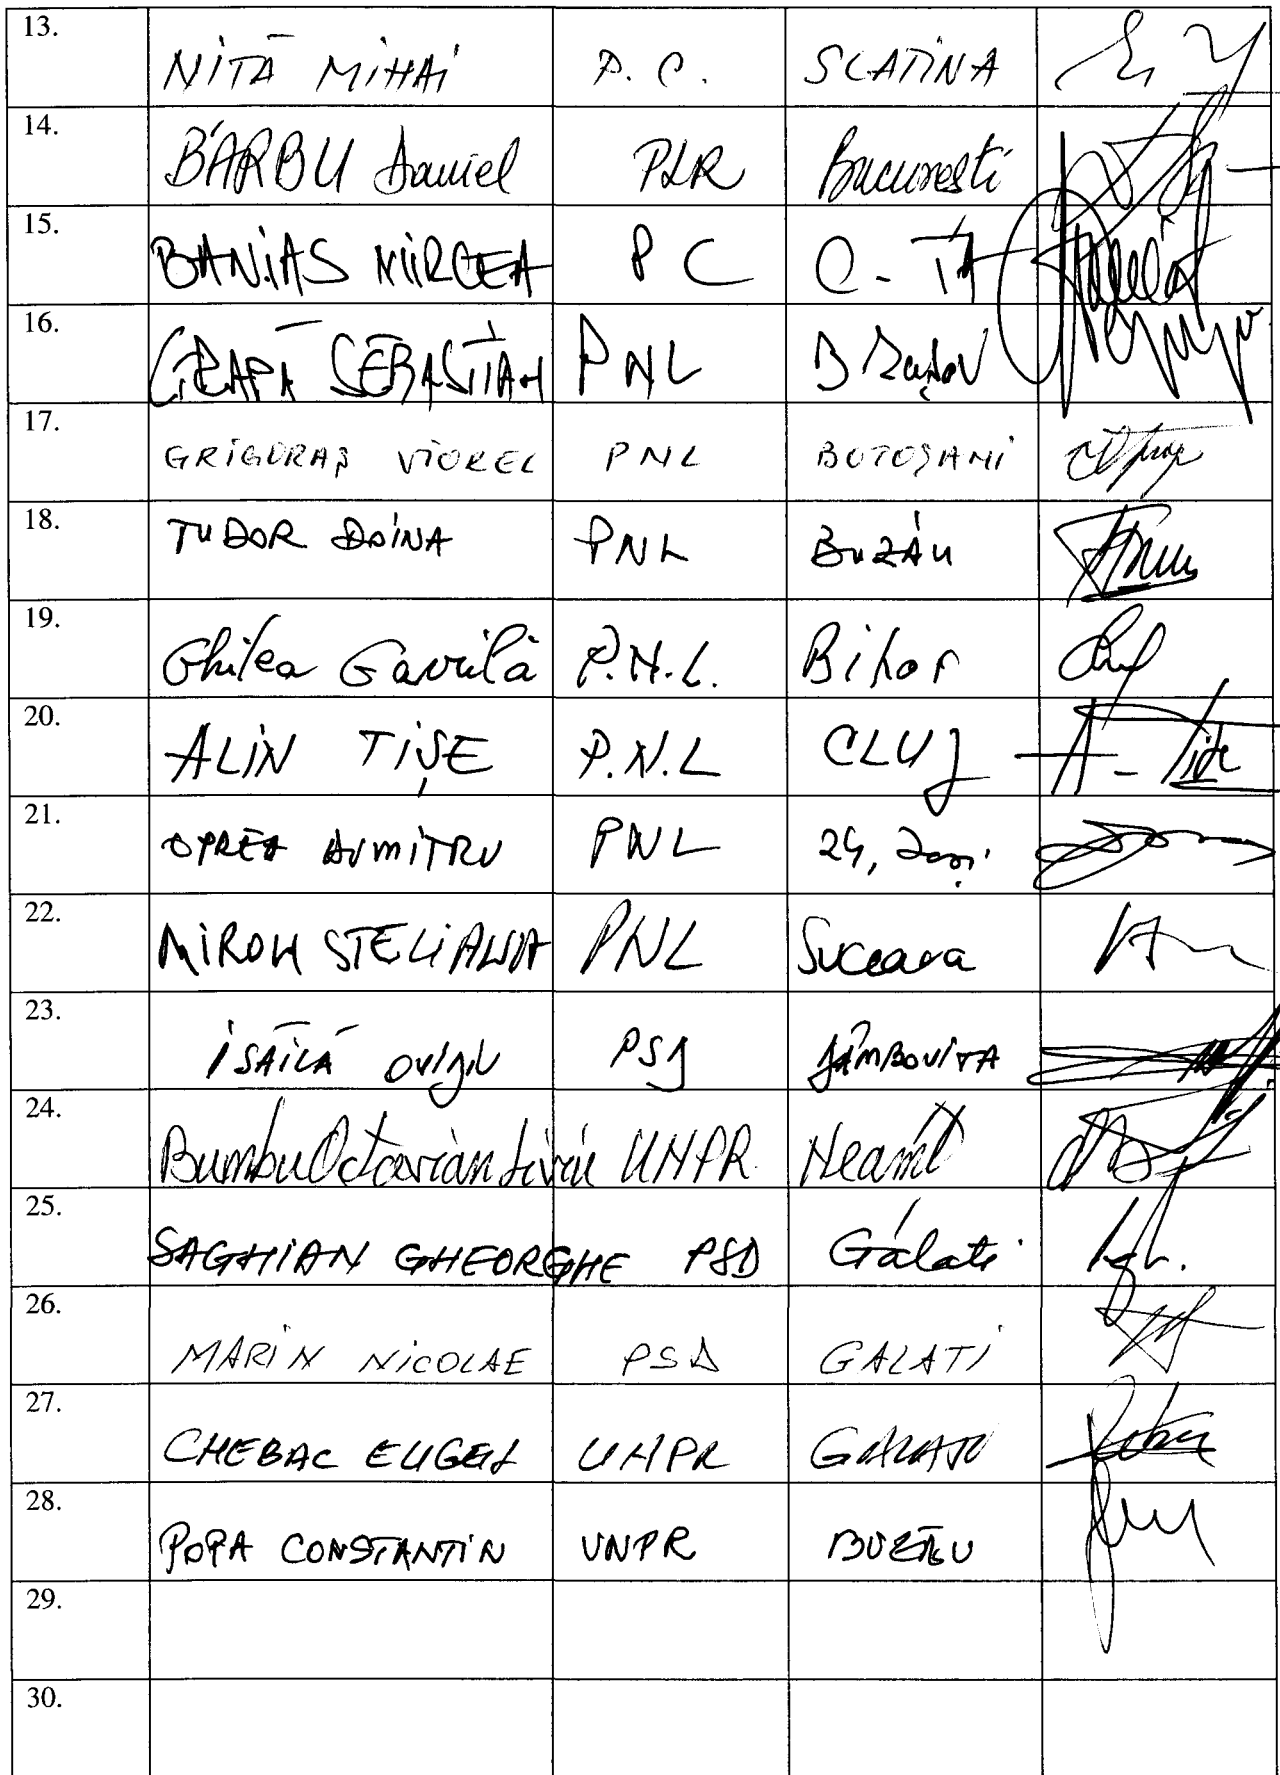 13. NIȚĂ MIHAI P.C. SLATINA
14. BARBU Daniel PLR București
15. BANIAS MIRCEA PC C-TA
16. GRAPĂ SEBASTIAN PNL Brașov
17. GRIGORAȘ VIOREL PNL BOTOȘANI
18. TUDOR DOINA PNL BUZĂU
19. Ghilea Gavrilă P.N.L. Bihor
20. ALIN TIȘE P.N.L CLUJ A-Tișe
21. OPREA DUMITRU PNL 24, Iași
22. MIRON STELIANA PNL Suceava
23. ISĂILĂ OVIDIU PSD DÂMBOVIȚA
24. Bumbu Octavian Liviu UNPR Neamț
25. SAGHIAN GHEORGHE PSD Galati
26. MARIN NICOLAE PSD GALATI
27. CHEBAC EUGEN UNPR GALATI
28. POPA CONSTANTIN UNPR BUZĂU
29.
30.